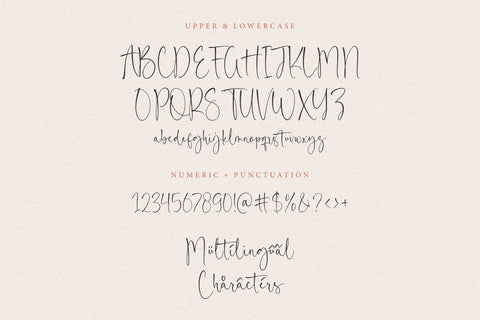 UPPER & LOWERCASE
ABCDEFGHIJKLMN
OPQRSTUVWXYZ
abcdefghijklmnopqrstuvwxyz
NUMERIC + PUNCTUATION
1234567890!@#$%&?<>+
Mültilingûãl
Chåråctérs